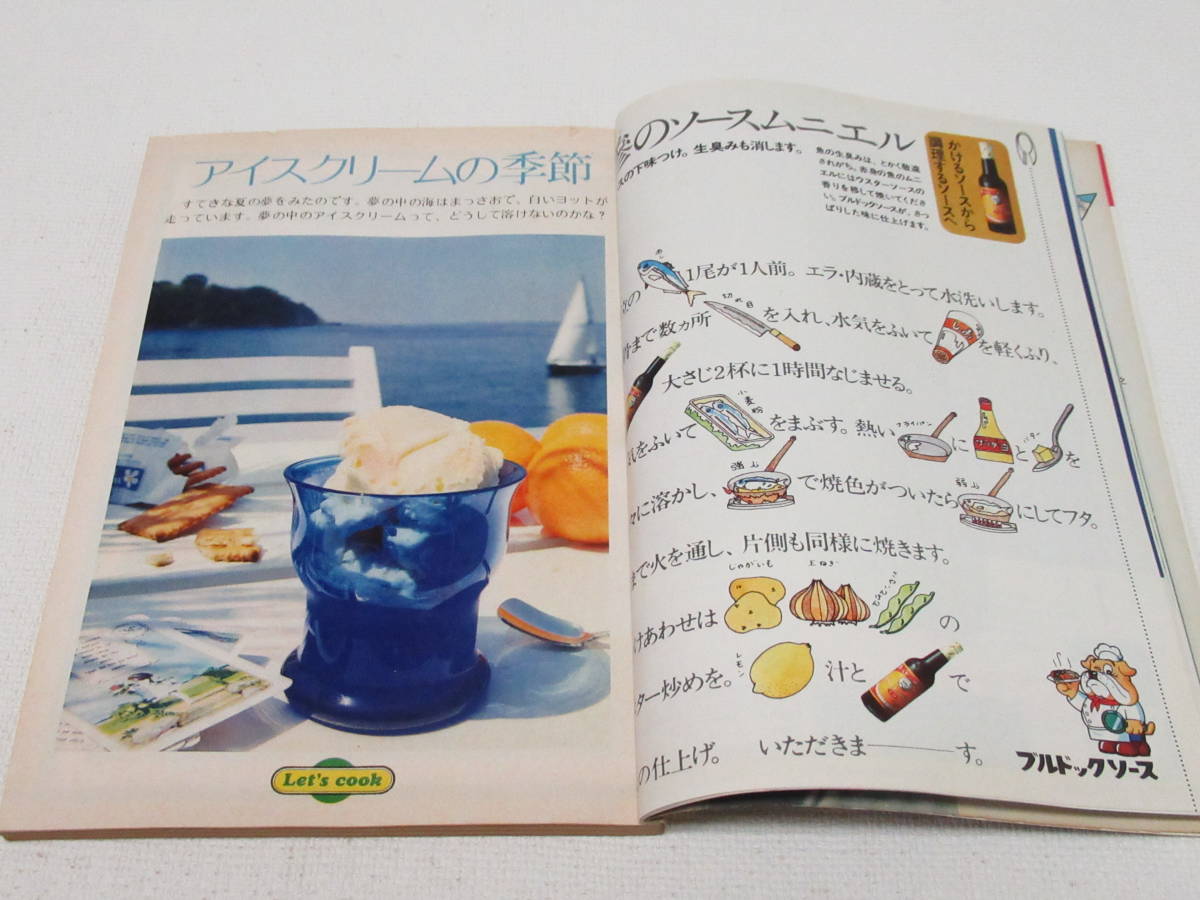 アイスクリームの季節
すてきな夏の夢をみたのです。夢の中の海はまっさおで、白いヨットが
走っています。夢の中のアイスクリームって、どうして溶けないのかな?
Let's cook
のソースムニエル
スの下味つけ。生臭みも消します。
魚の生臭みは、とかく敬遠
されがち。赤身の魚のムニ
エルにはウスターソースの
香りを移して焼いてくださ
い。ブルドックソースが、さっ
ぱりした味に仕上げます。
かけるソースから
調理するソースへ
の 1尾が1人前。エラ・内蔵をとって水洗いします。
まで数ヵ所 切れ目 を入れ、水気をふいて を軽くふり、
大さじ2杯に1時間なじませる。
をふいて 小麦粉 をまぶす。熱い フライパン に サラダ と バター を
に溶かし、 強火 で焼色がついたら 弱火 にしてフタ。
まで火を通し、片側も同様に焼きます。
けあわせは じゃがいも 玉ねぎ の
ター炒めを。 レモン 汁と で
の仕上げ。 いただきま———す。
ブルドックソース